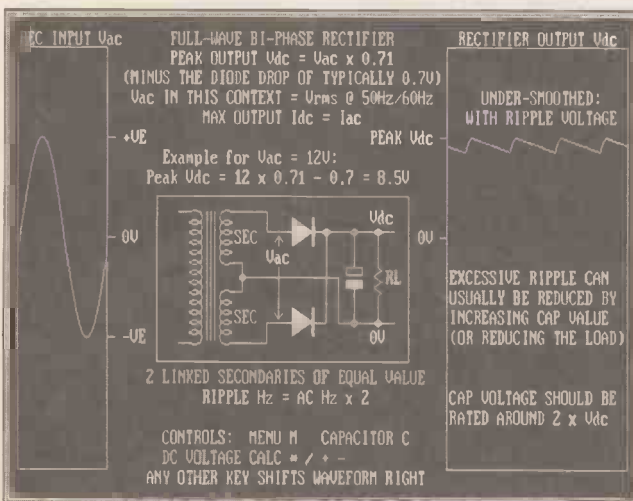 SEC INPUT Vac
FULL-WAVE BI-PHASE RECTIFIER
PEAK OUTPUT Vdc = Vac x 0.71
(MINUS THE DIODE DROP OF TYPICALLY 0.7V)
Vac IN THIS CONTEXT = Vrms @ 50Hz/60Hz
MAX OUTPUT Idc = Iac
Example for Vac = 12V:
Peak Vdc = 12 x 0.71 - 0.7 = 8.5V
+VE
0V
-VE
SEC
Vac
SEC
Vdc
RL
0V
2 LINKED SECONDARIES OF EQUAL VALUE
RIPPLE Hz = AC Hz x 2
CONTROLS: MENU M CAPACITOR C
DC VOLTAGE CALC * / + -
ANY OTHER KEY SHIFTS WAVEFORM RIGHT
RECTIFIER OUTPUT Vdc
UNDER-SMOOTHED:
WITH RIPPLE VOLTAGE
PEAK Vdc
0V
EXCESSIVE RIPPLE CAN
USUALLY BE REDUCED BY
INCREASING CAP VALUE
(OR REDUCING THE LOAD)
CAP VOLTAGE SHOULD BE
RATED AROUND 2 x Vdc